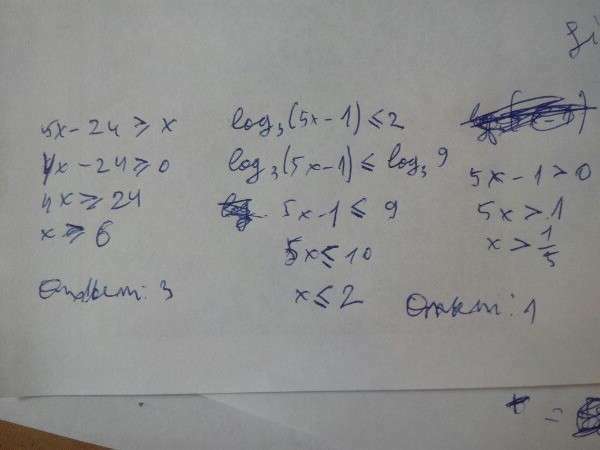 5x - 24 ≥ x
4x - 24 ≥ 0
4x ≥ 24
x ≥ 6
Ответ: 3
log₃(5x - 1) ≤ 2
log₃(5x - 1) ≤ log₃ 9
5x - 1 ≤ 9
5x ≤ 10
x ≤ 2
5x - 1 > 0
5x > 1
x > 1/5
Ответ: 1
=